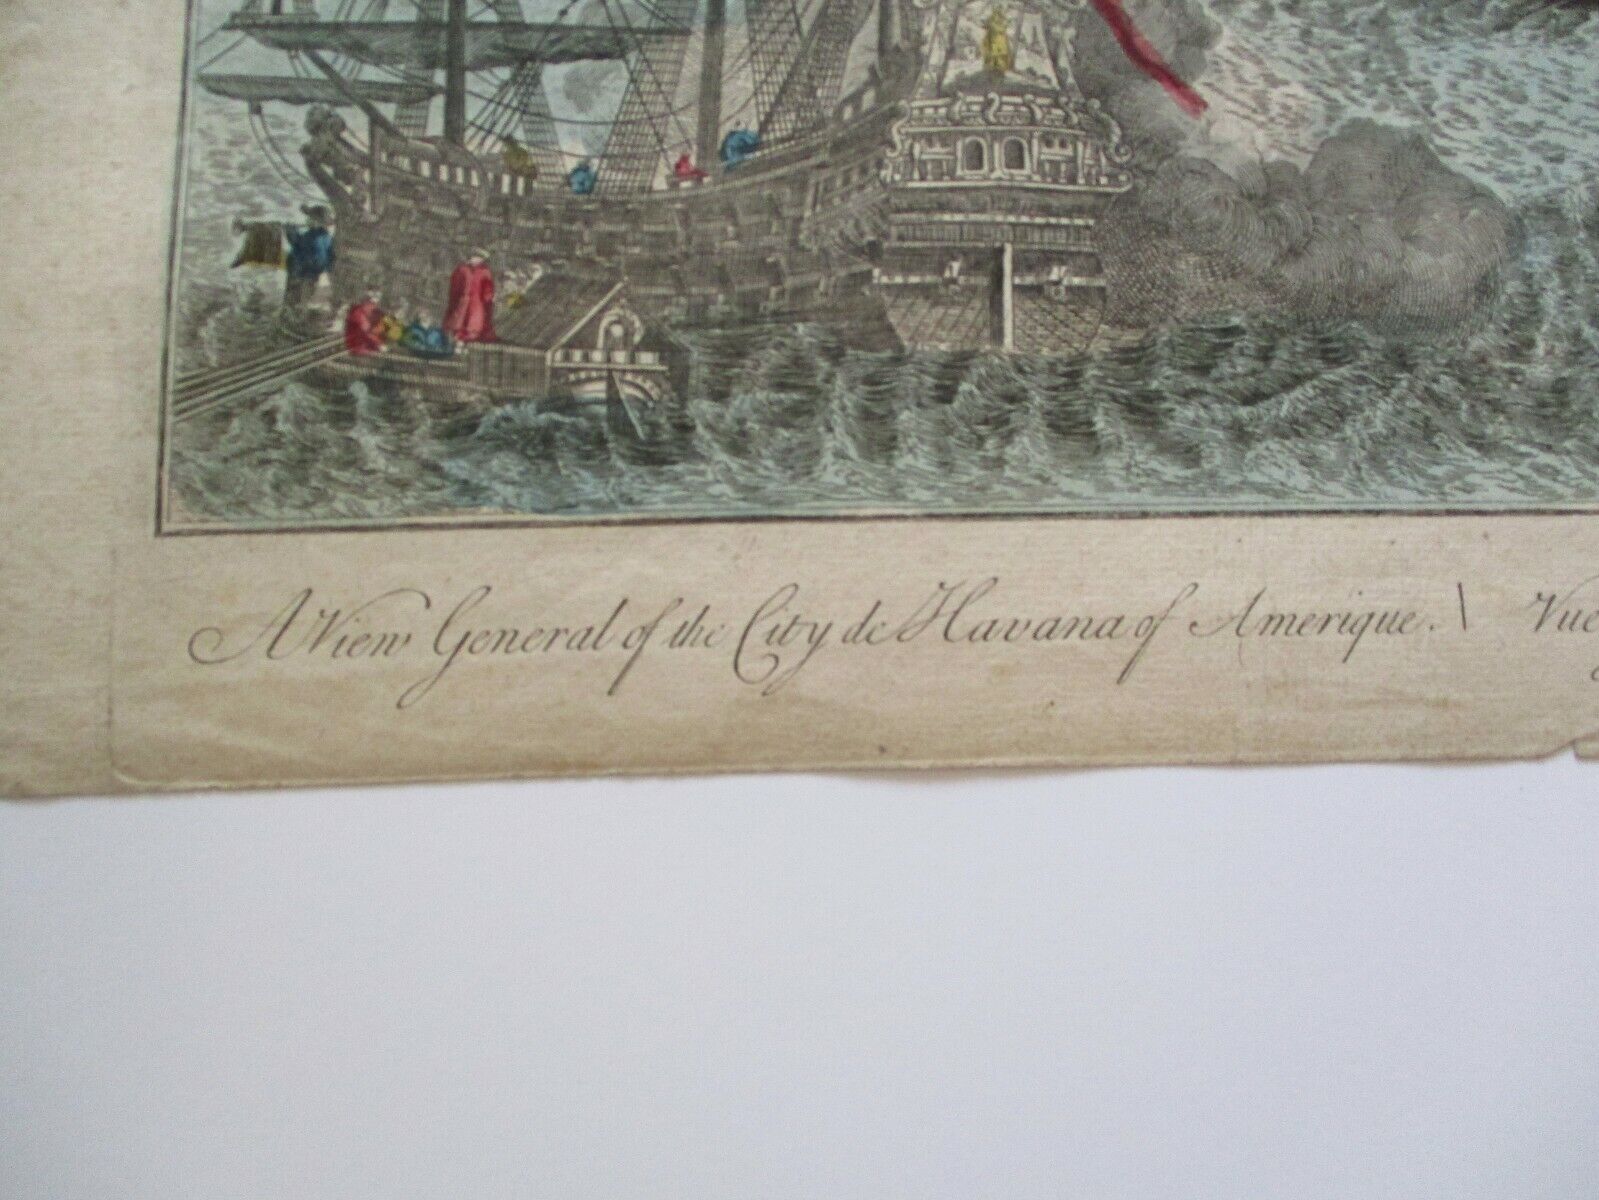 A View General of the City de Havana of Amerique. \ Vue